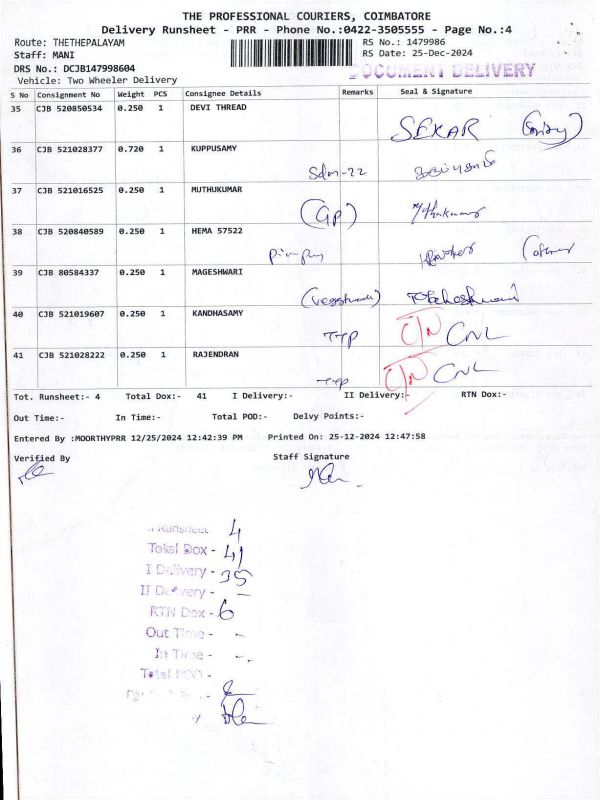 THE PROFESSIONAL COURIERS, COIMBATORE
Delivery Runsheet - PRR - Phone No.:0422-3505555 - Page No.:4
Route: THETHEPALAYAM RS No.: 1479986
Staff: MANI RS Date: 25-Dec-2024
DRS No.: DCJB147998604 DOCUMENT DELIVERY
Vehicle: Two Wheeler Delivery
S No Consignment No Weight PCS Consignee Details Remarks Seal & Signature
35 CJB 520850534 0.250 1 DEVI THREAD
SEKAR
36 CJB 521028377 0.720 1 KUPPUSAMY
Sdm-22
37 CJB 521016525 0.250 1 MUTHUKUMAR
(GP) Muthukumar
38 CJB 520840589 0.250 1 HEMA 57522
39 CJB 80584337 0.250 1 MAGESHWARI
40 CJB 521019607 0.250 1 KANDHASAMY
TTP C/N CNL
41 CJB 521028222 0.250 1 RAJENDRAN
TTP C/N CNL
Tot. Runsheet:- 4 Total Dox:- 41 I Delivery:- II Delivery:- RTN Dox:-
Out Time:- In Time:- Total POD:- Delvy Points:-
Entered By :MOORTHYPRR 12/25/2024 12:42:39 PM Printed On: 25-12-2024 12:47:58
Verified By Staff Signature
Runsheet 4
Total Dox - 41
I Delivery - 35
II Delivery - -
RTN Dox - 6
Out Time - -
In Time - -
Total POD -